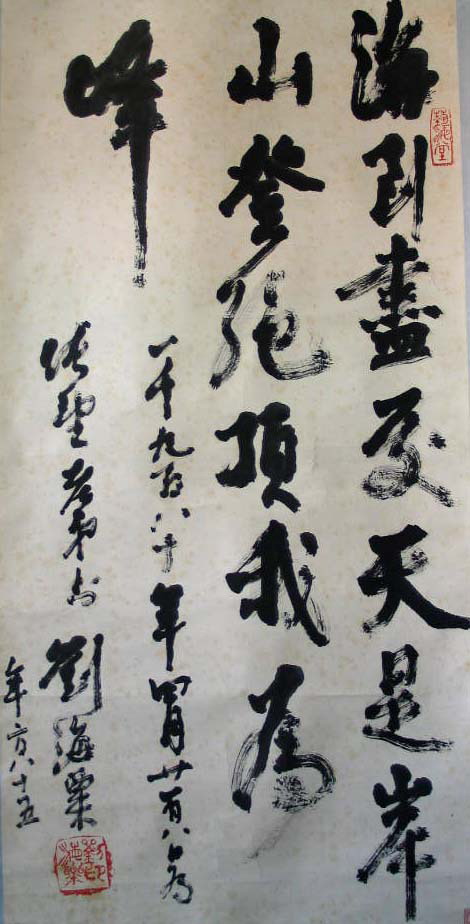 海到盡處天是岸
山登絕頂我為
峰
一千九百八十年四月廿日為
聖老弟 劉海粟
年方八十五